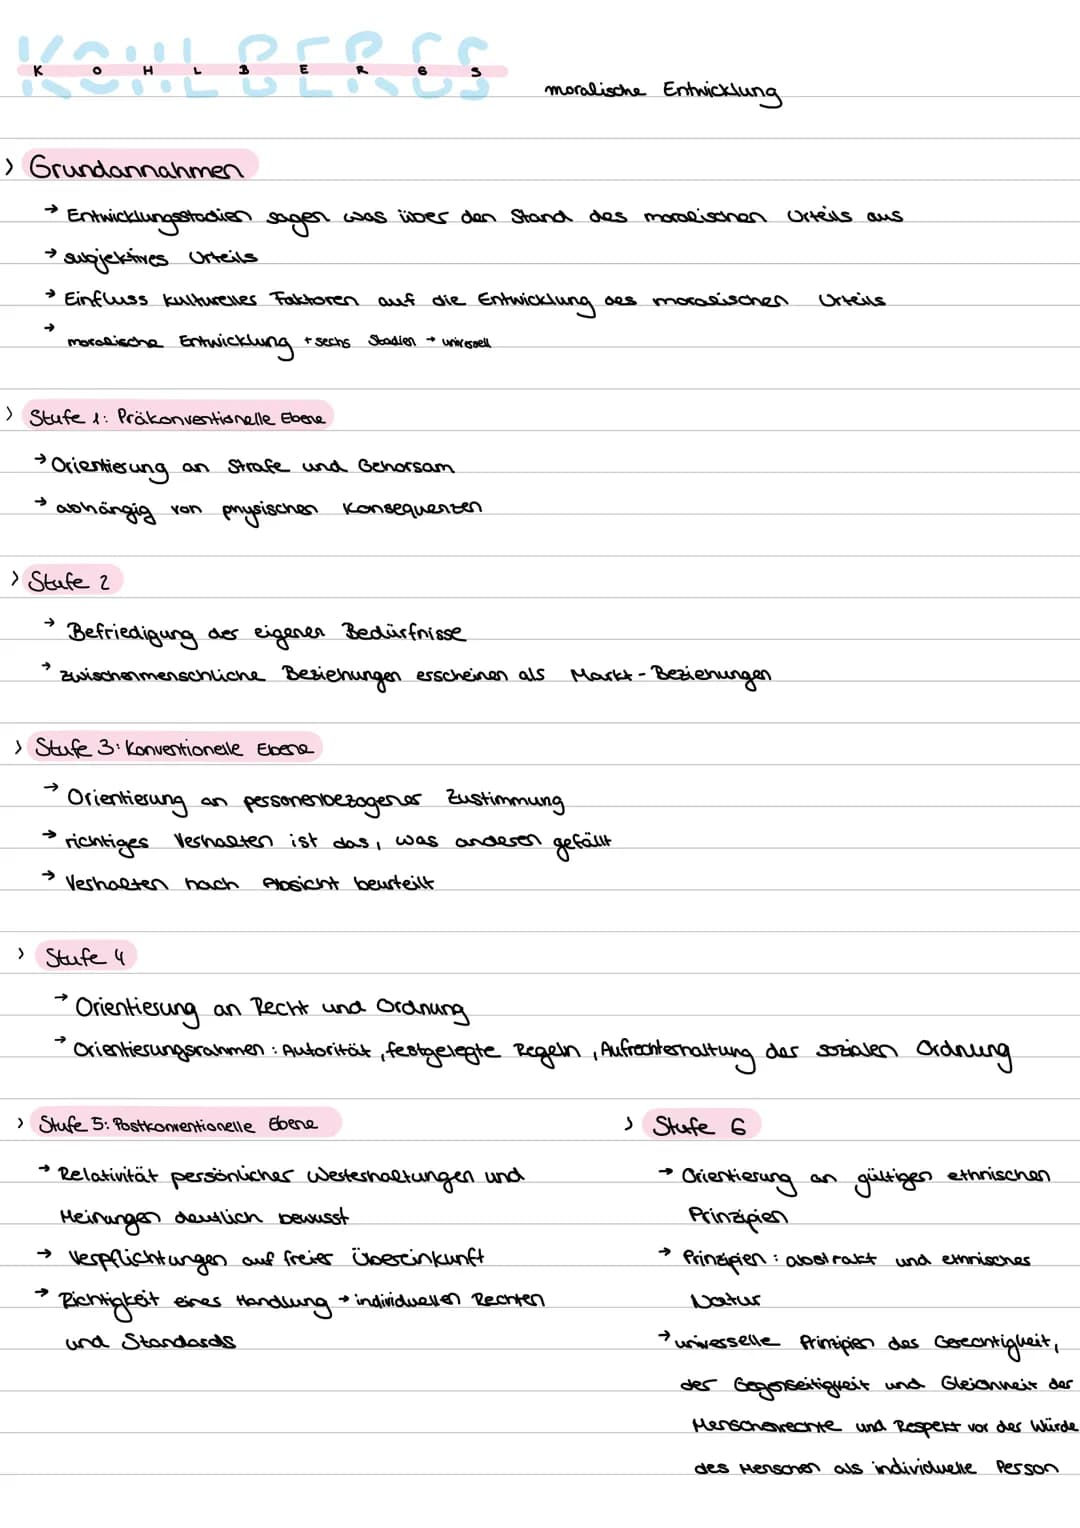 KOHLBERGS
moralische Entwicklung
> Grundannahmen
→ Entwicklungsstadien sagen was über den Stand des moralischen Urteils aus
→ subjektives Urteils
→ Einfluss kultureller Faktoren auf die Entwicklung des moralischen Urteils
→ moralische Entwicklung + sechs Stadien → universell
> Stufe 1: Präkonventionelle Ebene
→ Orientierung an Strafe und Gehorsam
→ abhängig von physischen Konsequenzen
> Stufe 2
→ Befriedigung der eigenen Bedürfnisse
→ zwischenmenschliche Beziehungen erscheinen als Markt-Beziehungen
> Stufe 3: Konventionelle Ebene
→ Orientierung an personenbezogener Zustimmung
→ richtiges Verhalten ist das, was anderen gefällt
→ Verhalten nach Absicht beurteilt
> Stufe 4
→ Orientierung an Recht und Ordnung
→ Orientierungsrahmen: Autorität, festgelegte Regeln, Aufrechterhaltung der sozialen Ordnung
> Stufe 5: Postkonventionelle Ebene
→ Relativität persönlicher Werterhaltungen und
Meinungen deutlich bewusst
→ Verpflichtungen auf freier Übereinkunft
→ Richtigkeit eines Handlung → individuellen Rechten
und Standards
> Stufe 6
→ Orientierung an gültigen ethnischen
Prinzipien
→ Prinzipien: abstrakt und ethnischer
Natur
→ universelle Prinzipien des Gerechtigkeit,
der Gegenseitigkeit und Gleichheit der
Menschenrechte und Respekt vor der Würde
des Menschen als individuelle Person